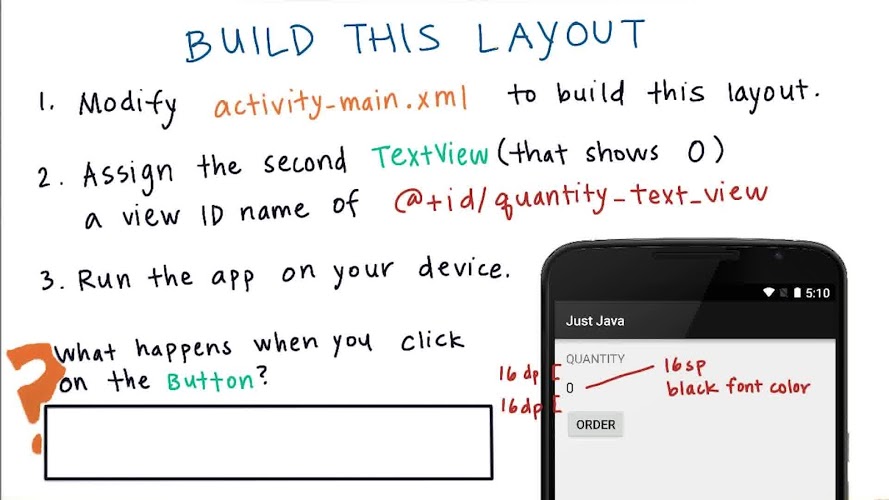 BUILD THIS LAYOUT
1. Modify activity-main.xml to build this layout.
2. Assign the second TextView (that shows 0)
a view ID name of @+id/quantity_text_view
3. Run the app on your device.
What happens when you click
on the Button?
5:10
Just Java
QUANTITY
16dp
0
16sp
black font color
16dp
ORDER